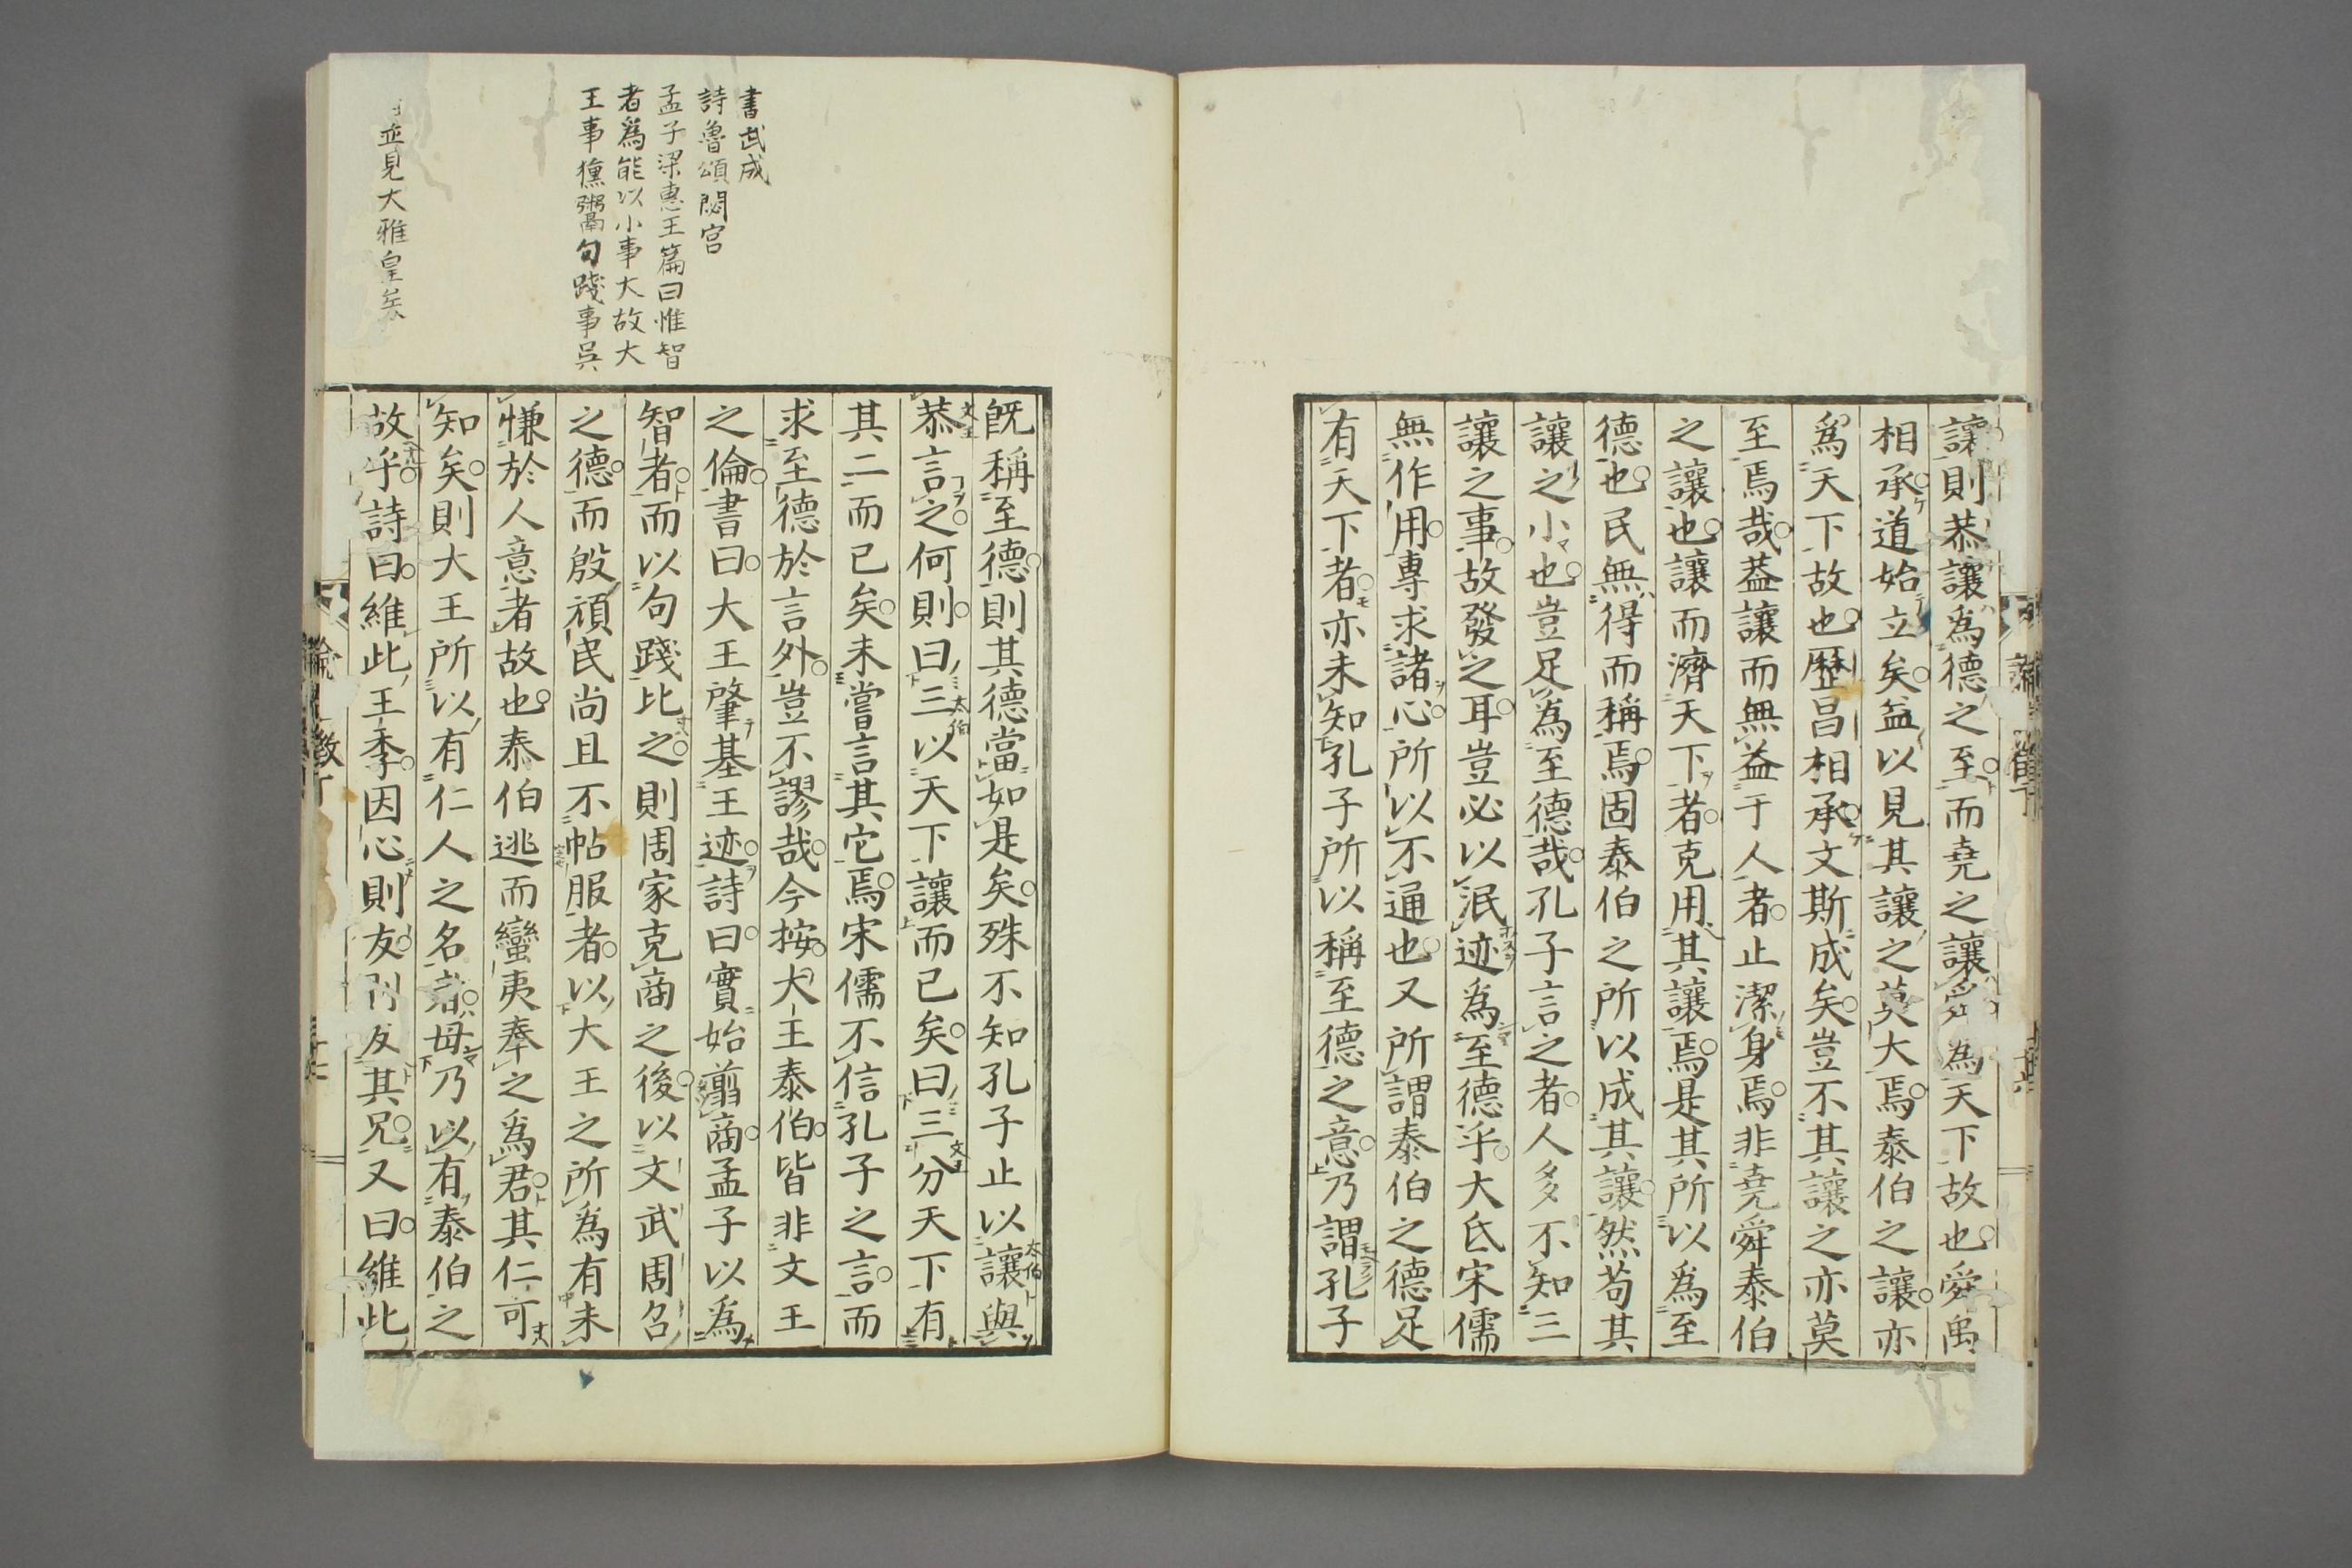 讓則恭讓爲德之至而堯之讓舜為天下故也舜禹
相承道始立矣益以見其讓之莫大焉泰伯之讓亦
爲天下故也歷昌相承文斯成矣豈不其讓之亦莫
至焉哉蓋讓而無益于人者止潔身焉非堯舜泰伯
之讓也讓而濟天下者克用其讓焉是其所以爲至
德也民無得而稱焉固泰伯之所以成其讓然苟其
讓之小也豈足為至德哉孔子言之者人多不知三
讓之事故發之耳豈必以泯迹為至德乎大氐宋儒
無作用專求諸心所以不通也又所謂泰伯之德足
有天下者亦未知孔子所以稱至德之意乃謂孔子
書武成
詩魯頌閟宮
孟子梁惠王篇曰惟智
者爲能以小事大故大
王事獯鬻句踐事吳
並見大雅皇矣
既稱至德則其德當如是矣殊不知孔子止以讓與
恭言之何則曰三以天下讓而已矣曰三分天下有
其二而已矣未嘗言其它焉宋儒不信孔子之言而
求至德於言外豈不謬哉今按大王泰伯皆非文王
之倫書曰大王肇基王迹詩曰實始翦商孟子以為
智者而以句踐比之則周家克商之後以文武周召
之德而殷頑民尚且不帖服者以大王之所為有未
慊於人意者故也泰伯逃而蠻夷奉之爲君其仁可
知矣則大王所以有仁人之名者毋乃以有泰伯之
故乎詩曰維此王季因心則友則友其兄又曰維此